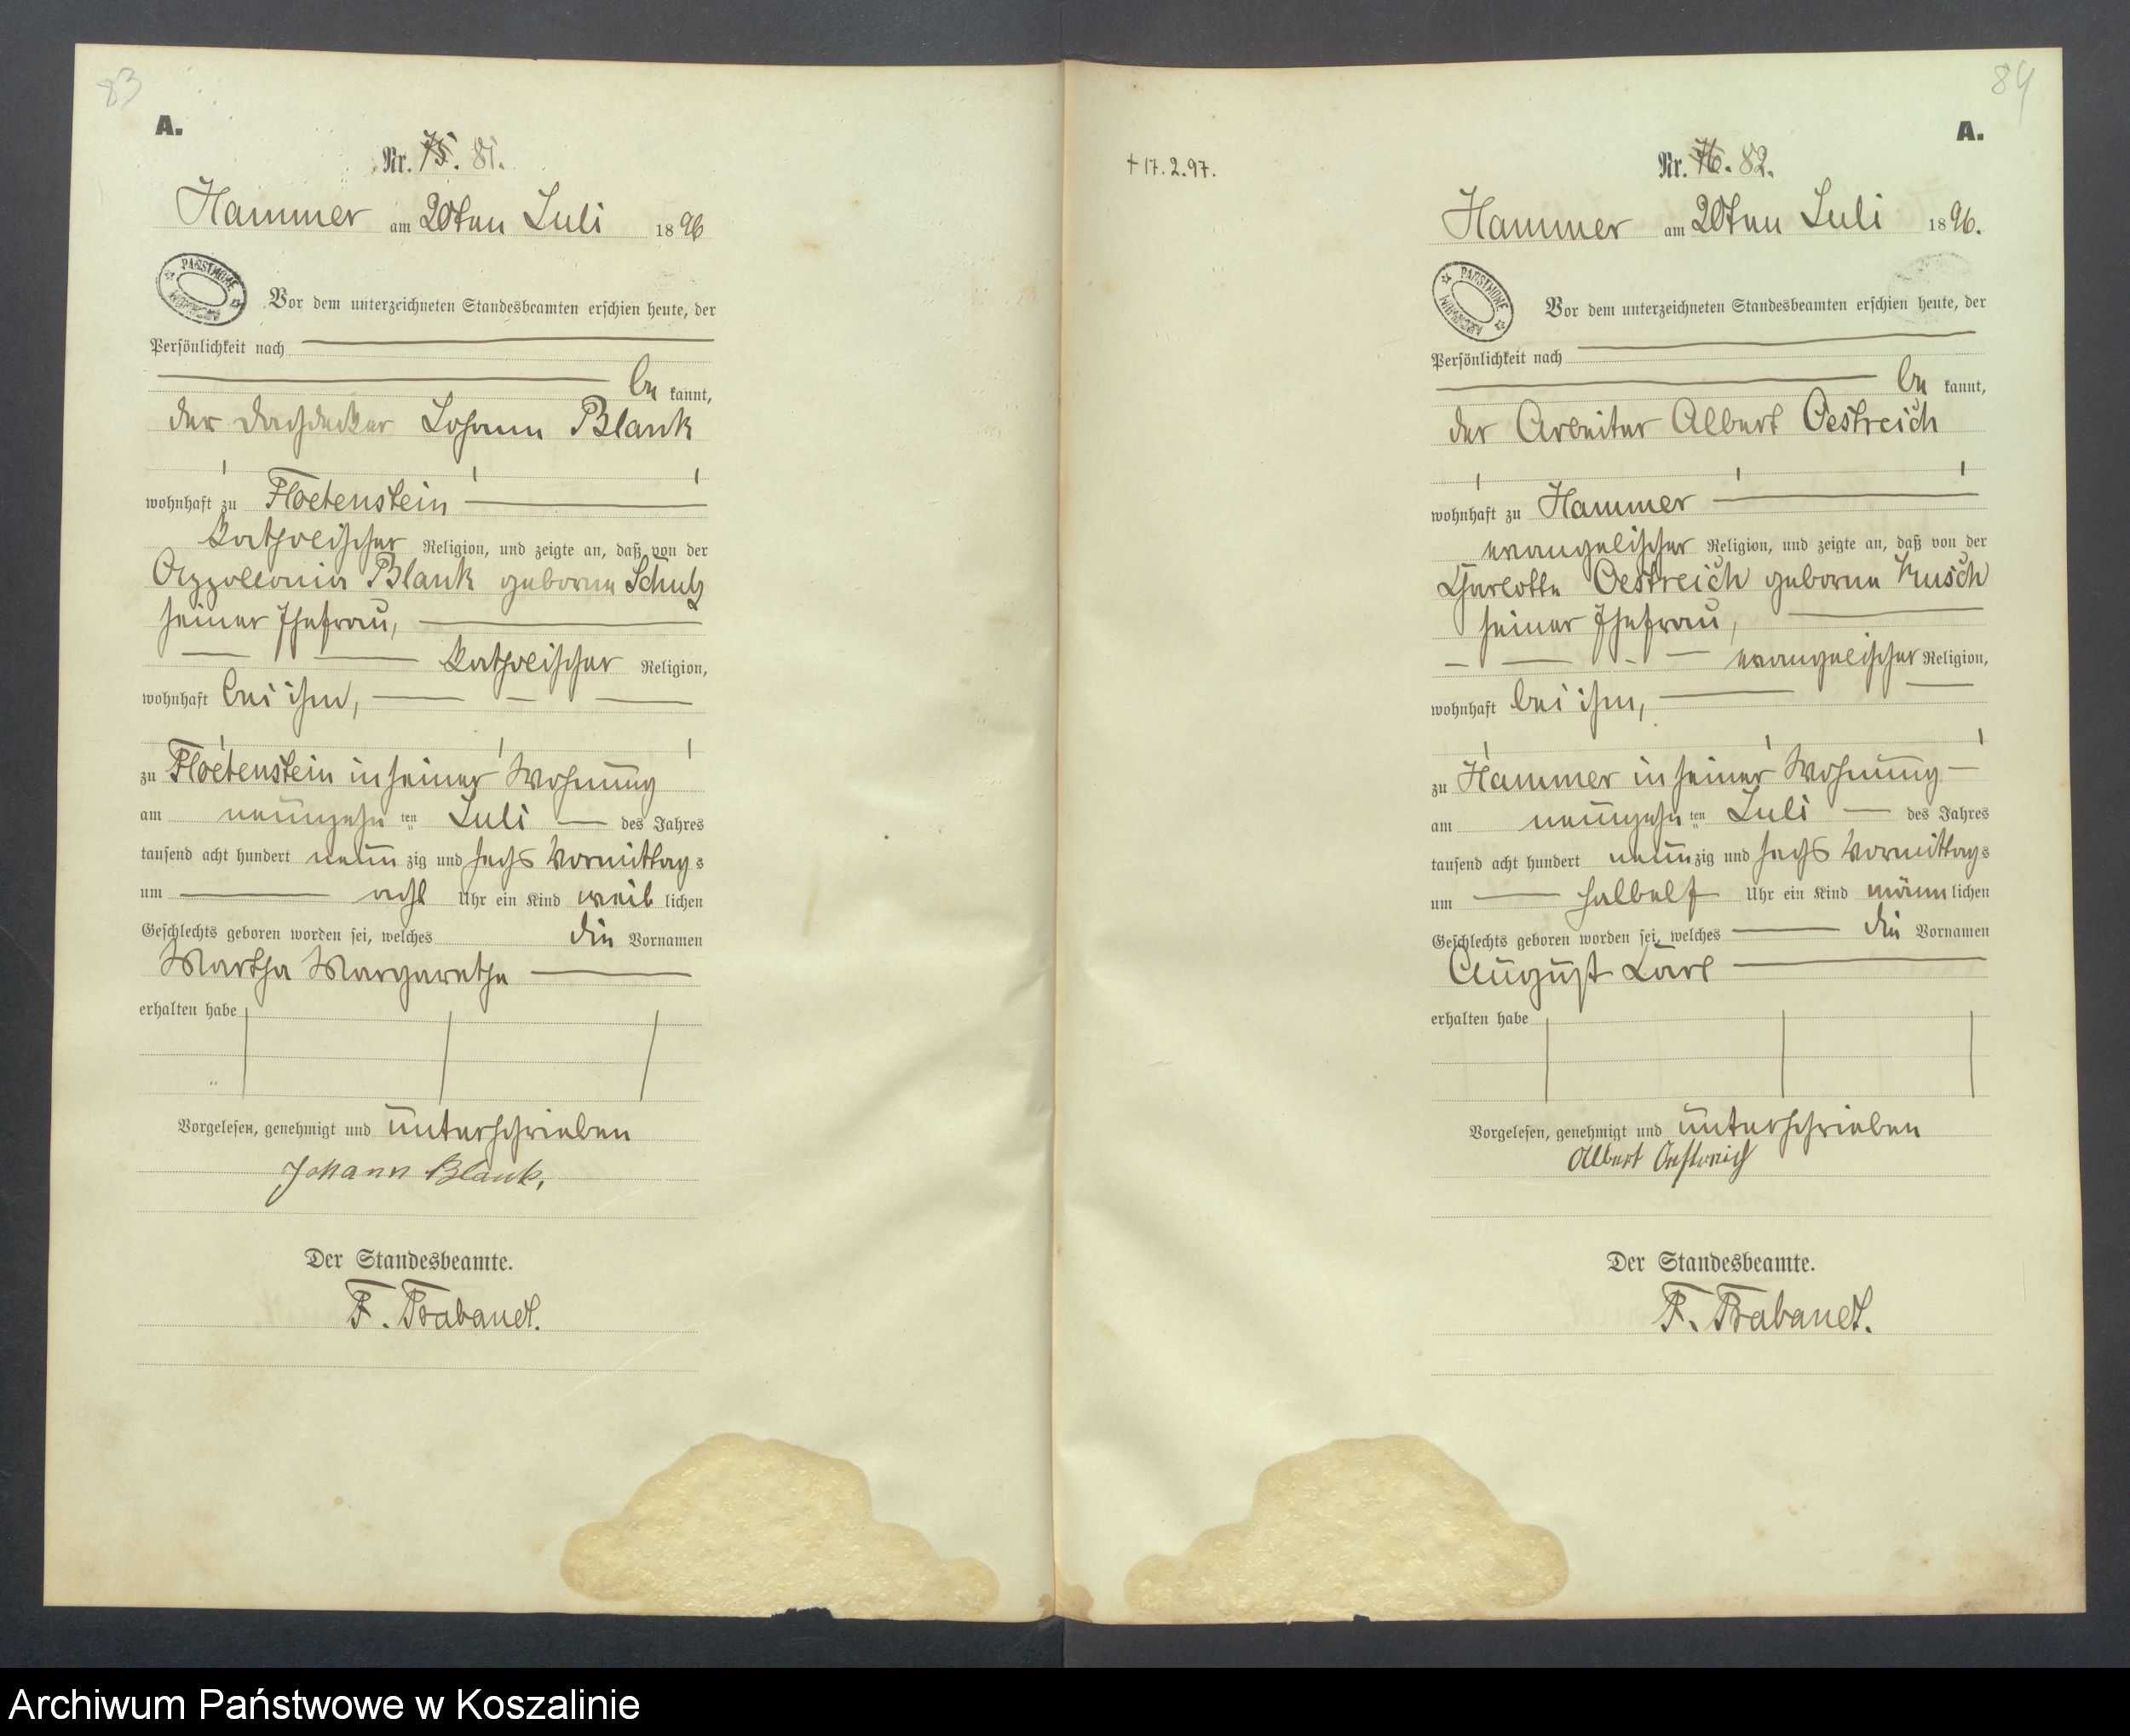 83
A.
Nr. 75. 81.
Hammer am 20ten Juli 1896
PAŃSTWOWE
ARCHIWUM
Vor dem unterzeichneten Standesbeamten erschien heute, der
Persönlichkeit nach
be kannt,
der Dachdecker Johann Blank
wohnhaft zu Floetenstein
katholischer Religion, und zeigte an, daß von der
Appollonia Blank geborne Schulz
seiner Ehefrau,
katholischer Religion,
wohnhaft bei ihm,
zu Floetenstein in seiner Wohnung
am neunzehn ten Juli des Jahres
tausend acht hundert neun zig und sechs Vormittag s
um acht Uhr ein Kind weib lichen
Geschlechts geboren worden sei, welches die Vornamen
Martha Margarethe
erhalten habe
Vorgelesen, genehmigt und unterschrieben
Johann Blank,
Der Standesbeamte.
F. Brabandt.
84
A.
+ 17. 2. 97.
Nr. 76. 82.
Hammer am 20ten Juli 1896.
PAŃSTWOWE
ARCHIWUM
Vor dem unterzeichneten Standesbeamten erschien heute, der
Persönlichkeit nach
be kannt,
der Arbeiter Albert Oestreich
wohnhaft zu Hammer
evangelischer Religion, und zeigte an, daß von der
Charlotte Oestreich geborne Rusch
seiner Ehefrau,
evangelischer Religion,
wohnhaft bei ihm,
zu Hammer in seiner Wohnung
am neunzehn ten Juli des Jahres
tausend acht hundert neun zig und sechs Vormittag s
um halbelf Uhr ein Kind männ lichen
Geschlechts geboren worden sei, welches die Vornamen
August Carl
erhalten habe
Vorgelesen, genehmigt und unterschrieben
Albert Oestreich
Der Standesbeamte.
F. Brabandt.
Archiwum Państwowe w Koszalinie